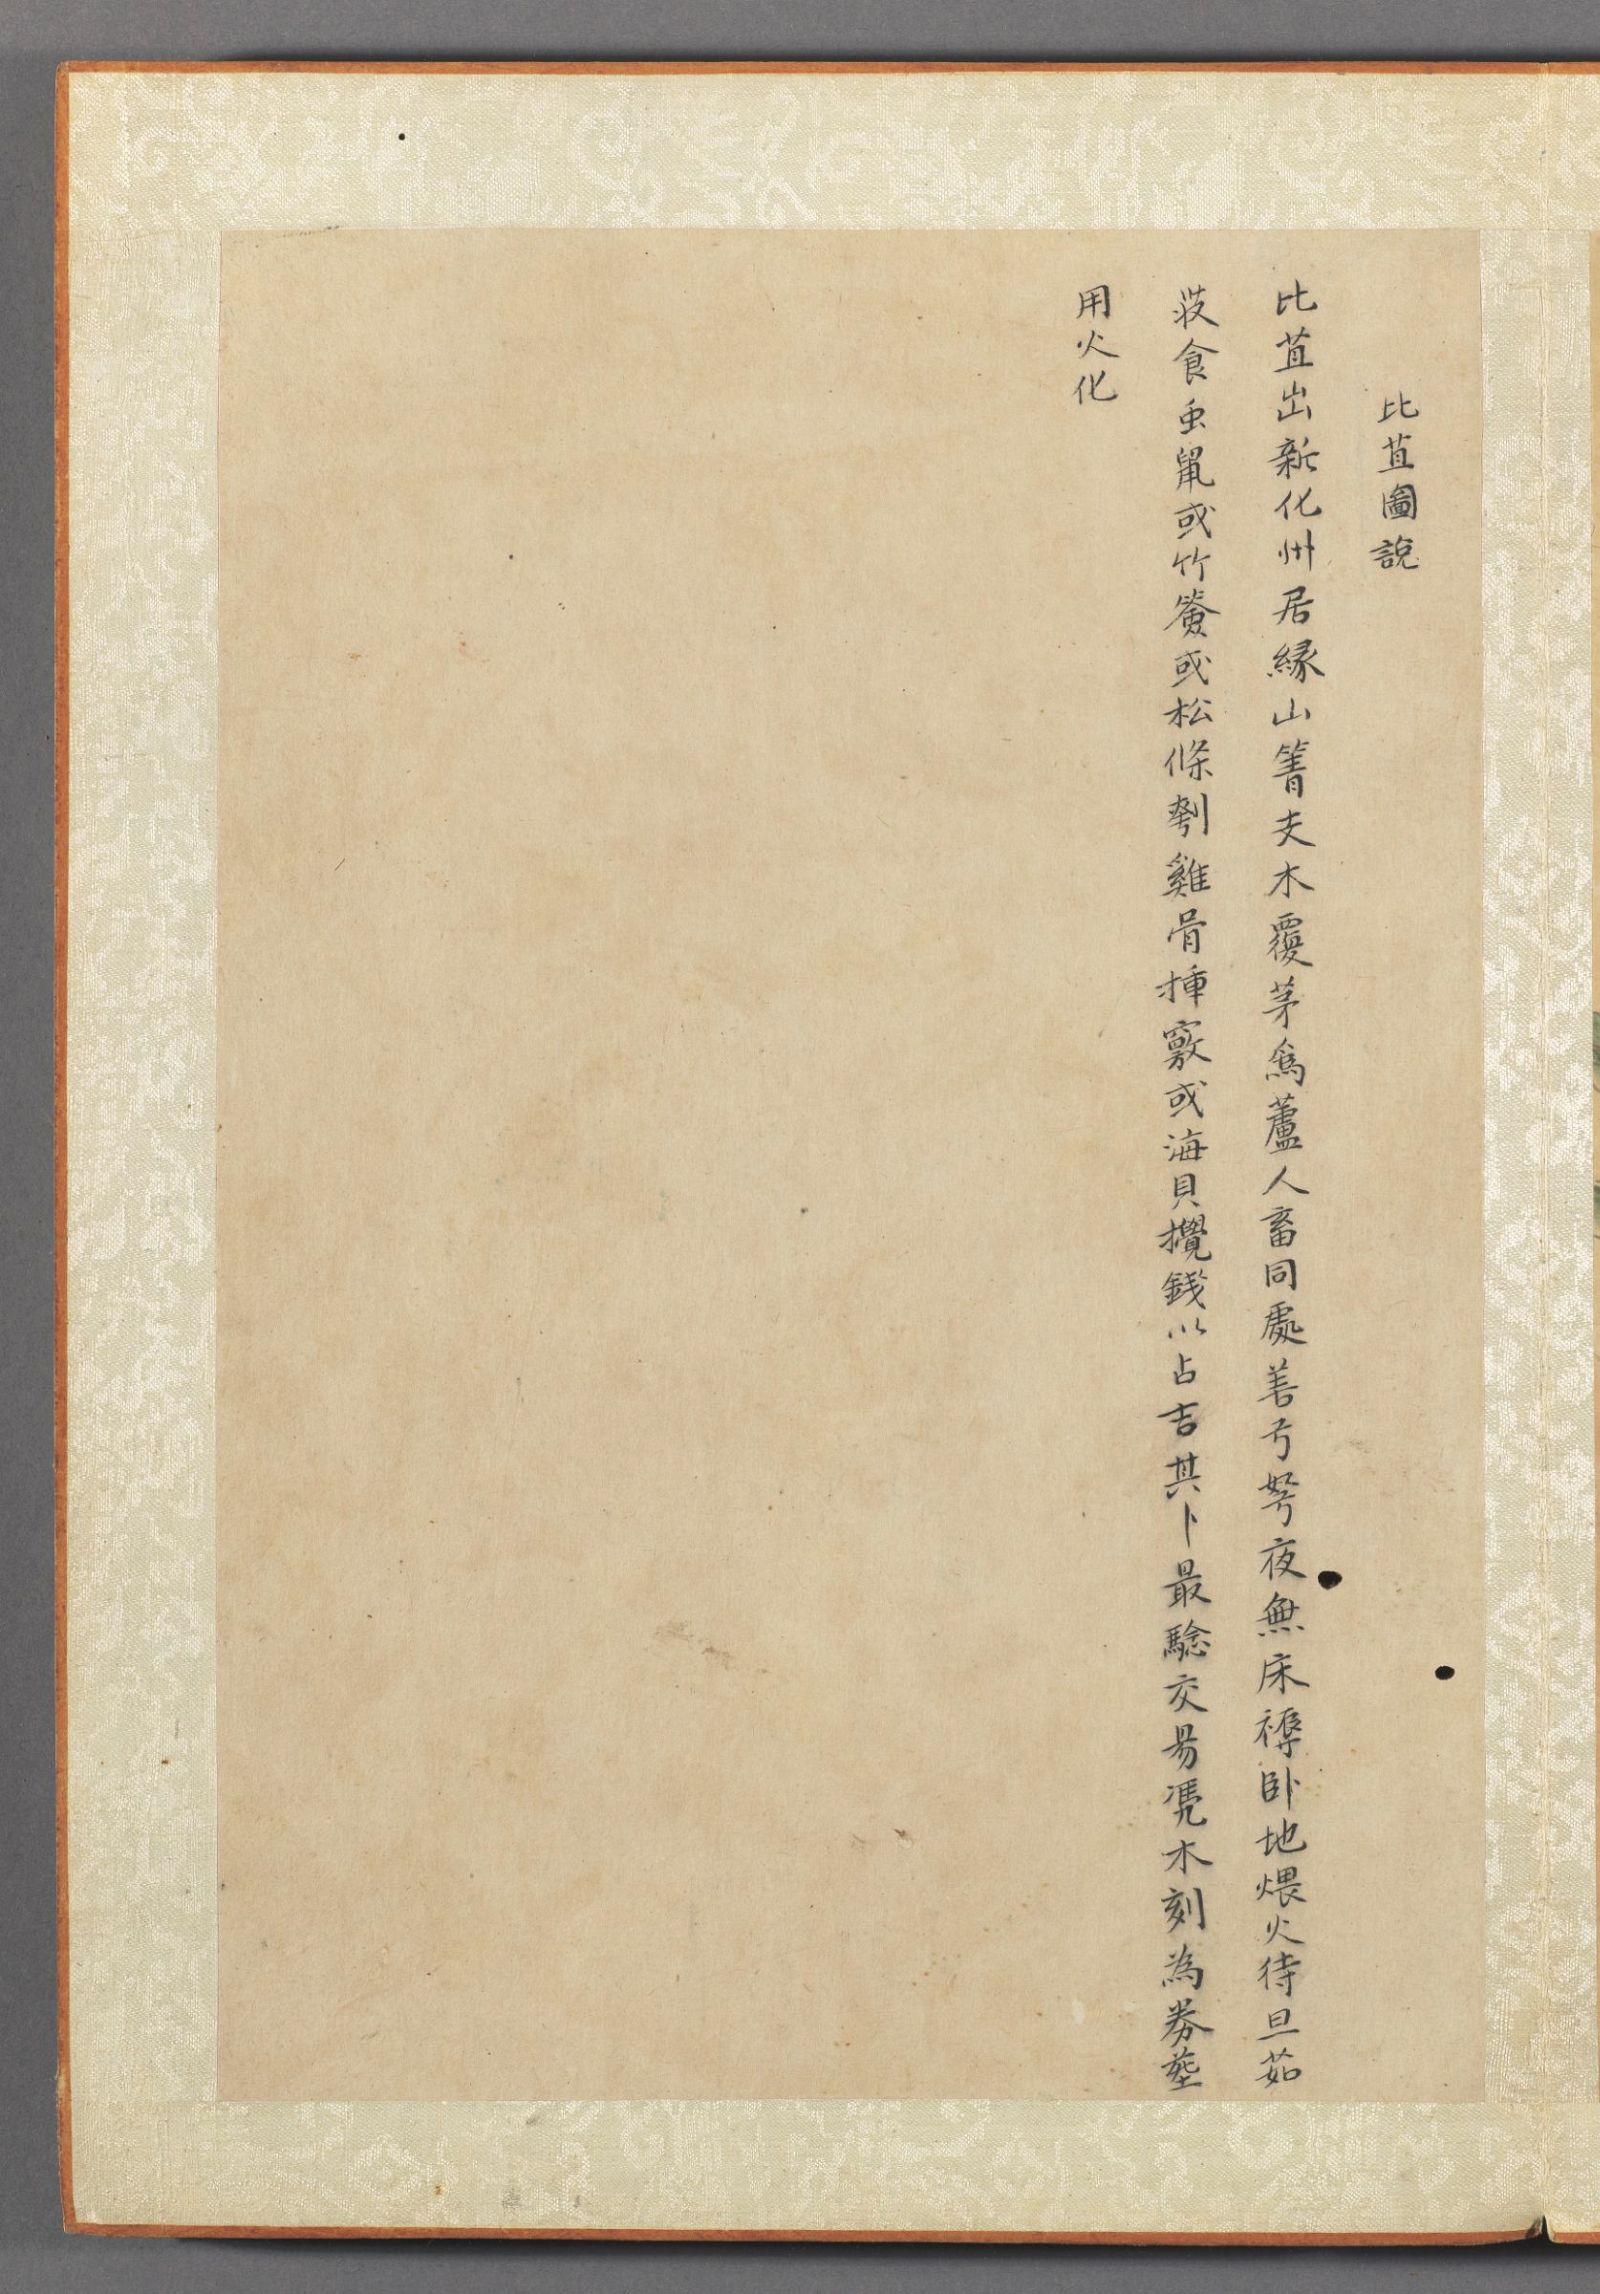 比苴圖說
比苴出新化州居緣山箐夫木覆茅爲蘆人畜同處善弓弩夜無床褥臥地煨火待旦茹
菽食虫鼠或竹簽或松條刳雞骨揷竅或海貝攪錢以占吉其卜最驗交易凴木刻為券塟
用火化